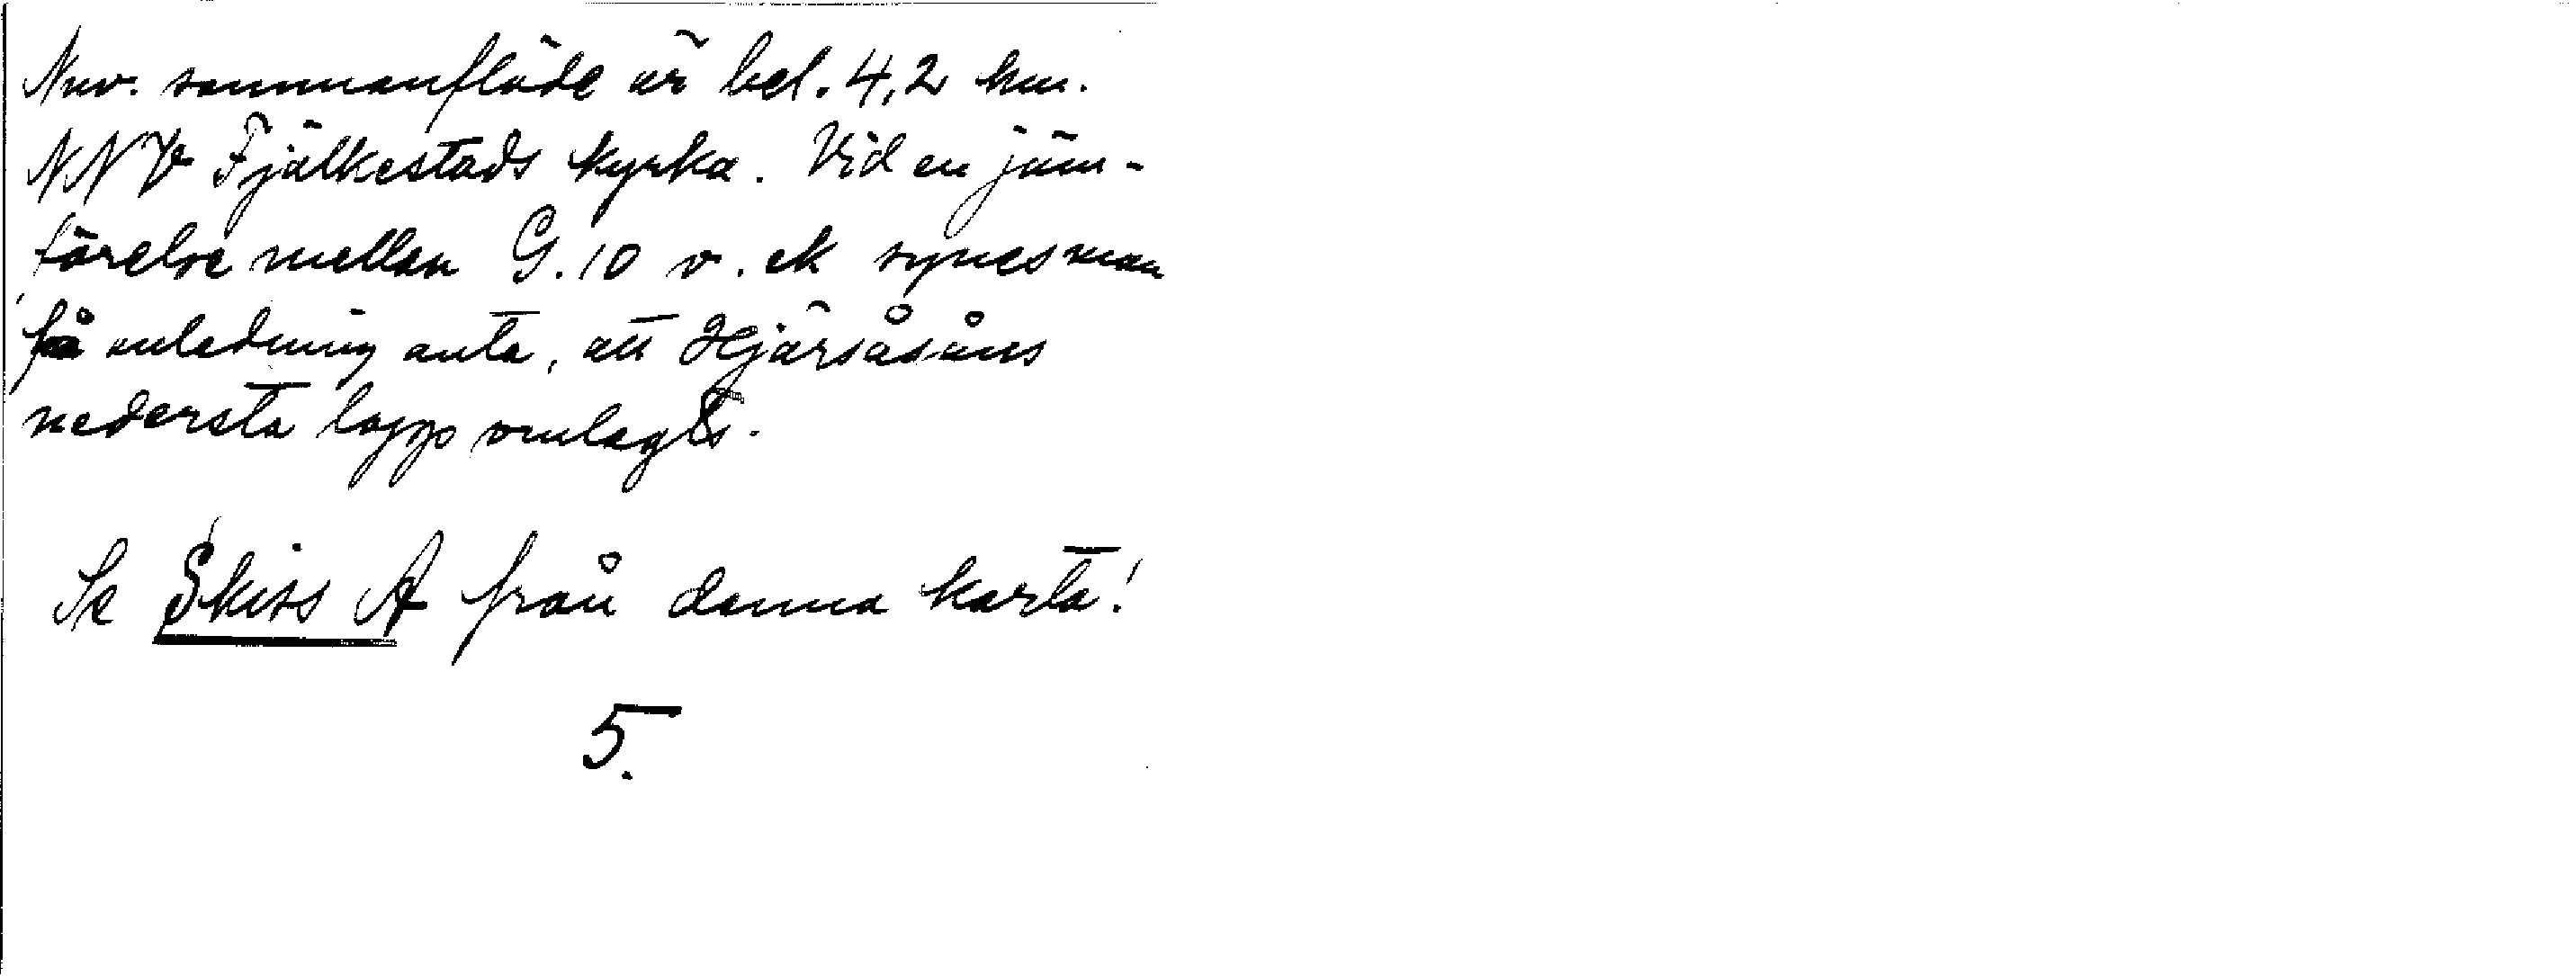 Nuv. sammanflöde är bel. 4,2 km.
NNV Fjälkestads kyrka. Vid en jäm-
förelse mellan G. 10 v. ek synes man
få anledning anta, att Hjärsåsåns
nedersta lopp omlagts.
Se Skiss A från denna karta!
5.